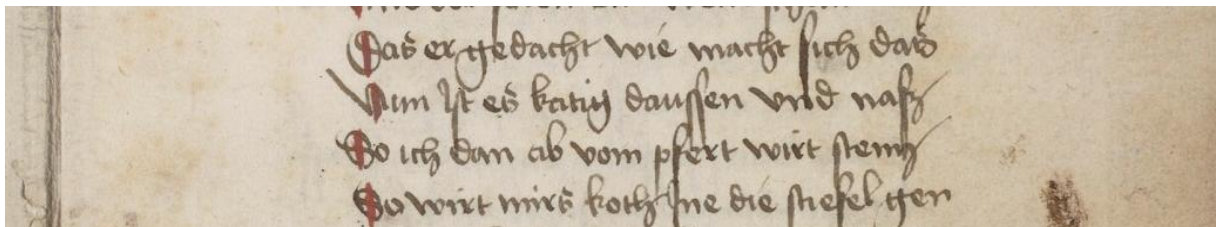 Das er gedacht wie macht sich das
Nun Ist es katig daussen vnd nasz
So ich dan ab vom pfert wirt
So wirt mirs koth Jne die stiefel gen